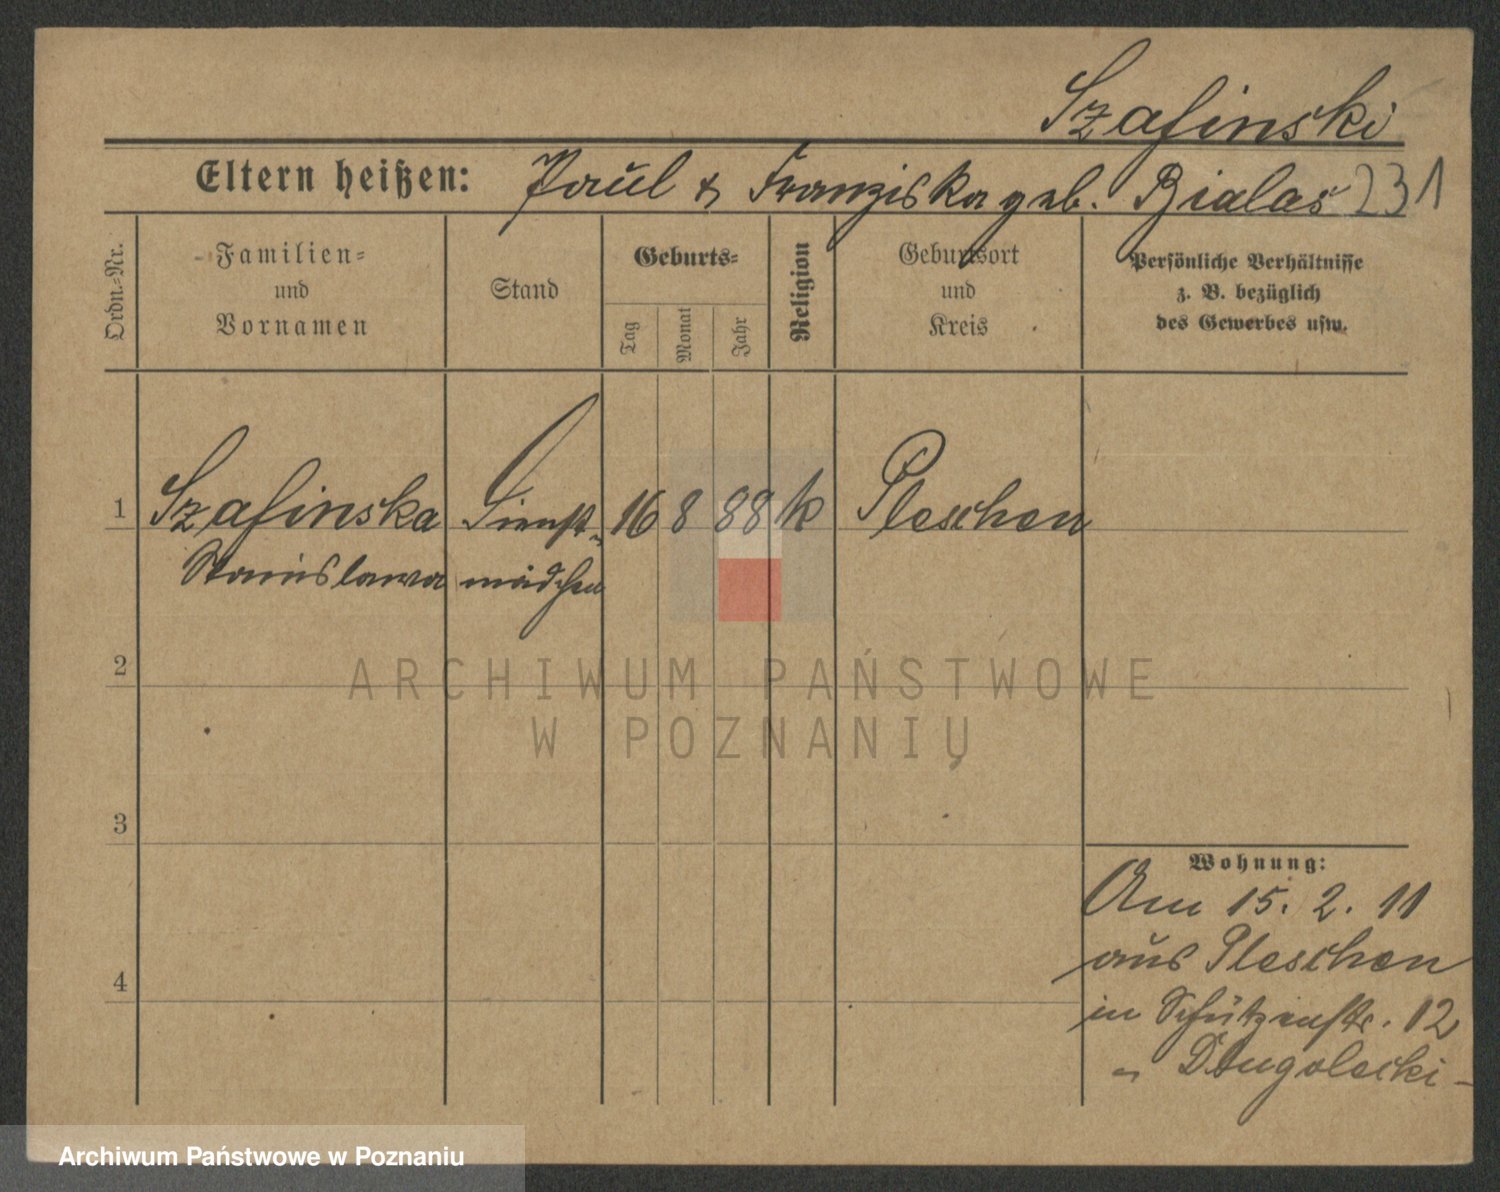 Szafinski
Eltern heißen: Paul & Franziska geb. Bialas 231
Ordn.-Nr.
Familien-
und
Vornamen
Stand
Geburts-
Tag
Monat
Jahr
Religion
Geburtsort
und
Kreis
Persönliche Verhältnisse
z. B. bezüglich
des Gewerbes usw.
1 Szafinska Dienst- 16 8 88 k Pleschen
Stanislawa mädchen
2
ARCHIWUM PAŃSTWOWE
W POZNANIU
3
Wohnung:
Am 15. 2. 11
aus Pleschen
4
in Schützenstr. 12
Dlugolecki
Archiwum Państwowe w Poznaniu